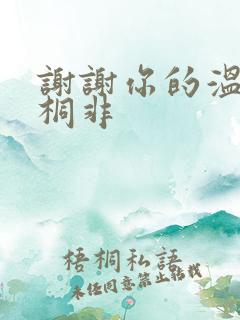 謝謝你的溫
桐非
梧桐私語
未經同意禁止轉載